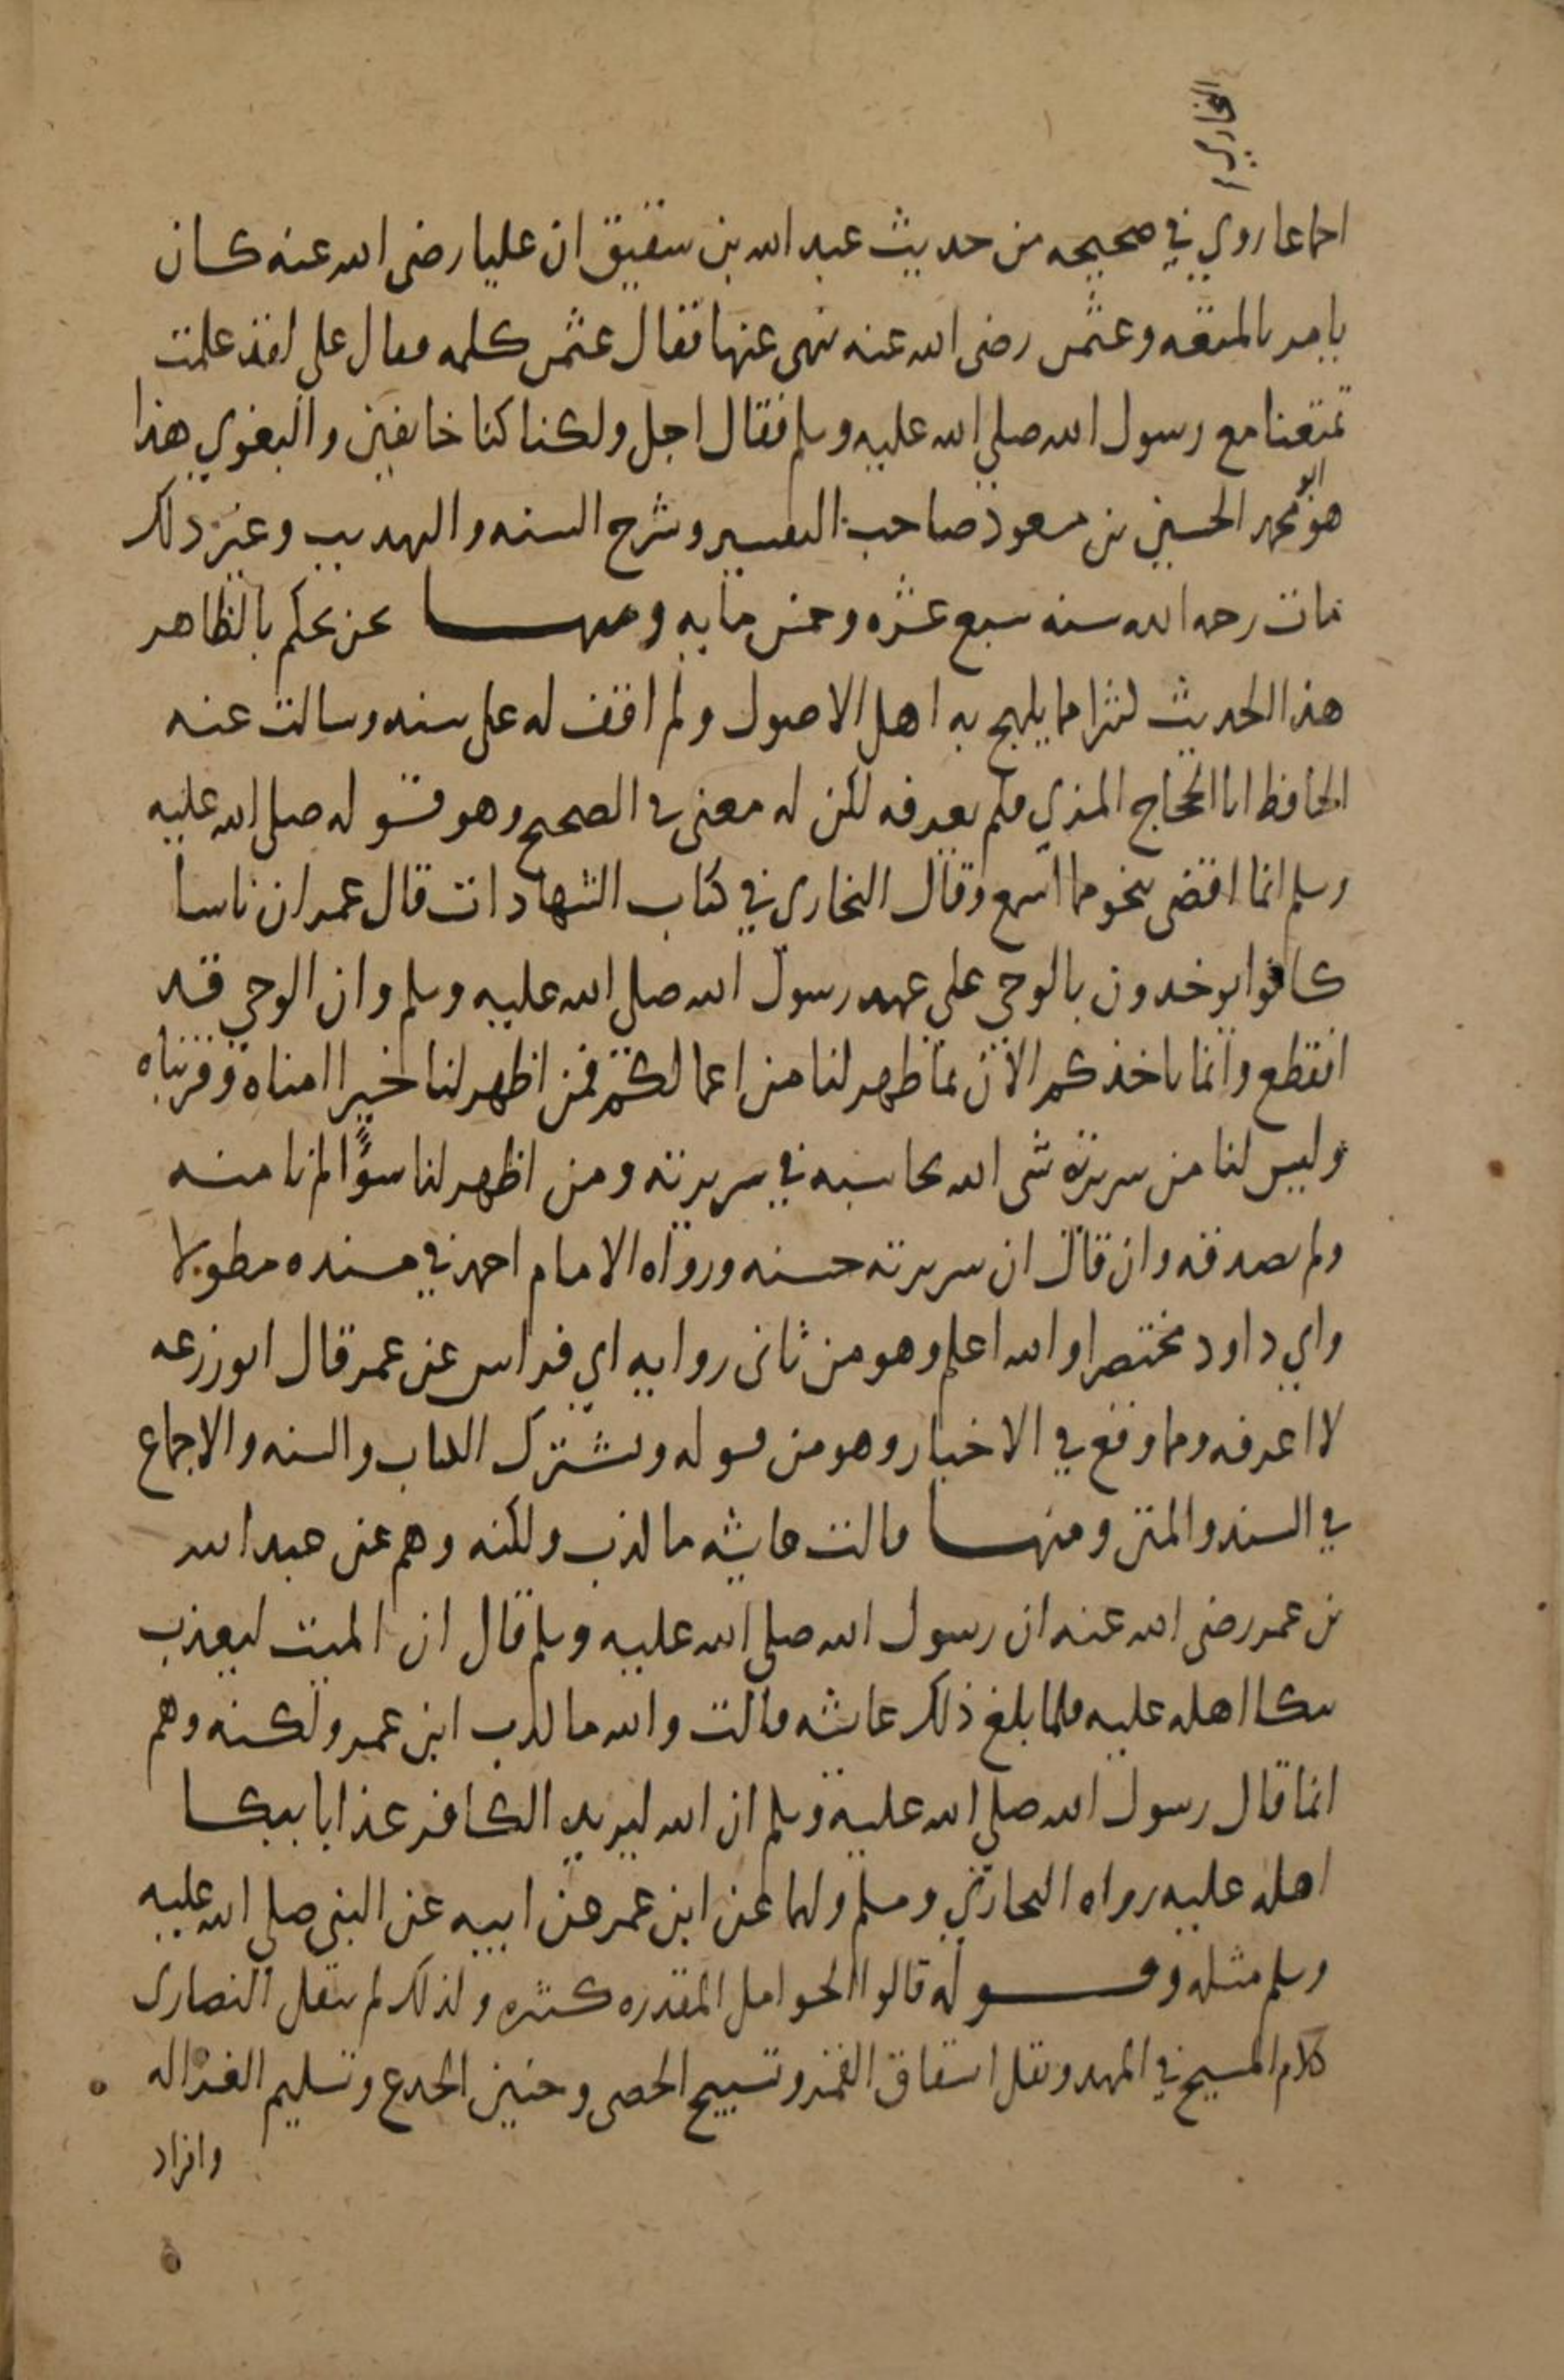 البخاري
اجماعا روي في صحيحه من حديث عبد الله بن شقيق ان عليا رضى الله عنه كان
يامر بالمتعه وعثمن رضى الله عنه نهى عنها فقال عثمن كلمه فقال علي لقد علمت
تمتعنا مع رسول الله صلي الله عليه وسلم فقال اجل ولكنا كنا خايفين والبغوي هذا
هو ابو محمد الحسين بن مسعود صاحب التفسير وشرح السنه والتهذيب وغير ذلك
مات رحمه الله سنه سبع عشره وخمس مايه ومنها نحن نحكم بالظاهر
هذا الحديث كثيرا ما يلهج به اهل الاصول ولم اقف له على سند وسالت عنه
الحافظ ابا الحجاج المزي فلم يعرفه لكن له معنى في الصحيح وهو قوله صلى الله عليه
وسلم انما اقضى بنحو مما اسمع وقال البخارى في كتاب الشهادات قال عمر ان ناسا
كانوا يوخذون بالوحي على عهد رسول الله صلى الله عليه وسلم وان الوحي قد
انقطع وانما ناخذكم الان بما ظهر لنا من اعمالكم فمن اظهر لنا خيرا امناه وقربناه
وليس لنا من سريرته شى الله يحاسبه في سريرته ومن اظهر لنا سوًا لم نامنه
ولم نصدقه وان قال ان سريرته حسنه ورواه الامام احمد في مسنده مطولا
وابي داود مختصرا والله اعلم وهو من ثانى روايه ابي فراس عن عمر قال ابو زرعه
لا اعرفه ومما وقع في الاخبار وهو من قوله ويشترك الكتاب والسنه والاجماع
في السند والمتن ومنها قالت عايشه ما كذب ولكنه وهم عن عبد الله
بن عمر رضى الله عنه ان رسول الله صلى الله عليه وسلم قال ان الميت ليعذب
ببكا اهله عليه فلما بلغ ذلك عايشه قالت والله ما كذب ابن عمر ولكنه وهم
انما قال رسول الله صلي الله عليه وسلم ان الله ليزيد الكافر عذابا ببكا
اهله عليه رواه البخاري ومسلم ولهما عن ابن عمر عن ابيه عن النبى صلى الله عليه
وسلم مثله وقوله قالوا الحوامل المقدره كثيره ولذلك لم ينقل النصارى
كلام المسيح في المهد ونقل انشقاق القمر وتسبيح الحصى وحنين الجذع وتسليم الغزاله
وافراد